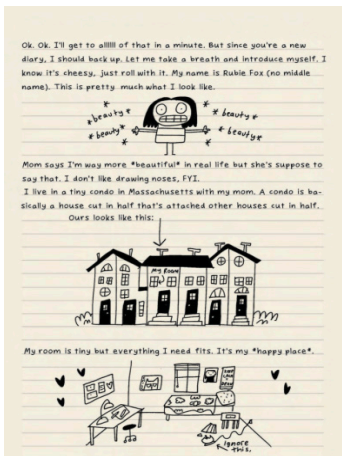 Ok. Ok. I'll get to allllll of that in a minute. But since you're a new
diary, I should back up. Let me take a breath and introduce myself. I
know it's cheesy, just roll with it. My name is Rubie Fox (no middle
name). This is pretty much what I look like.
*beauty* *beauty*
*beauty* *beauty*
Mom says I'm way more *beautiful* in real life but she's suppose to
say that. I don't like drawing noses, FYI.
I live in a tiny condo in Massachusetts with my mom. A condo is ba-
sically a house cut in half that's attached other houses cut in half.
Ours looks like this:
My Room
My room is tiny but everything I need fits. It's my *happy place*.
ignore
this.